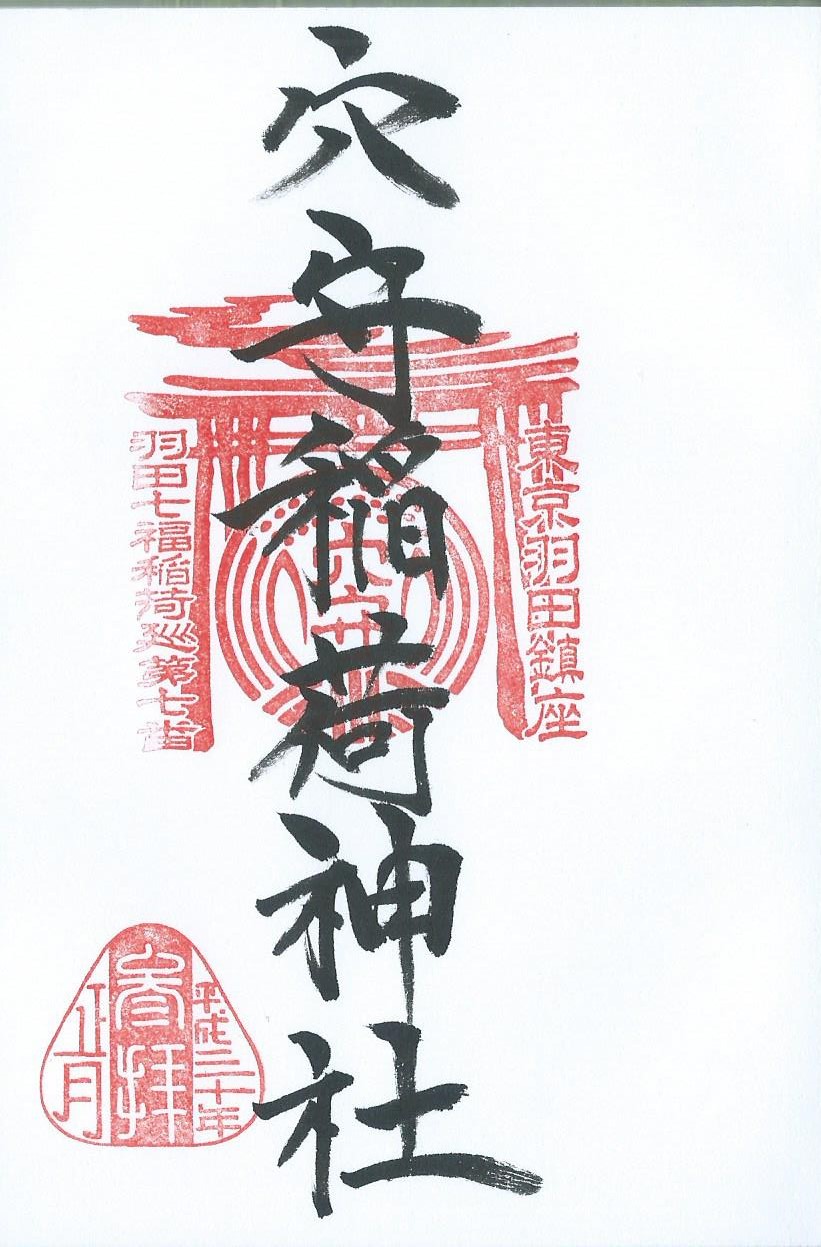 東京羽田鎮座
穴守稲荷神社
穴守
羽田七福稲荷巡第七番
平成三十年
参拝
正月